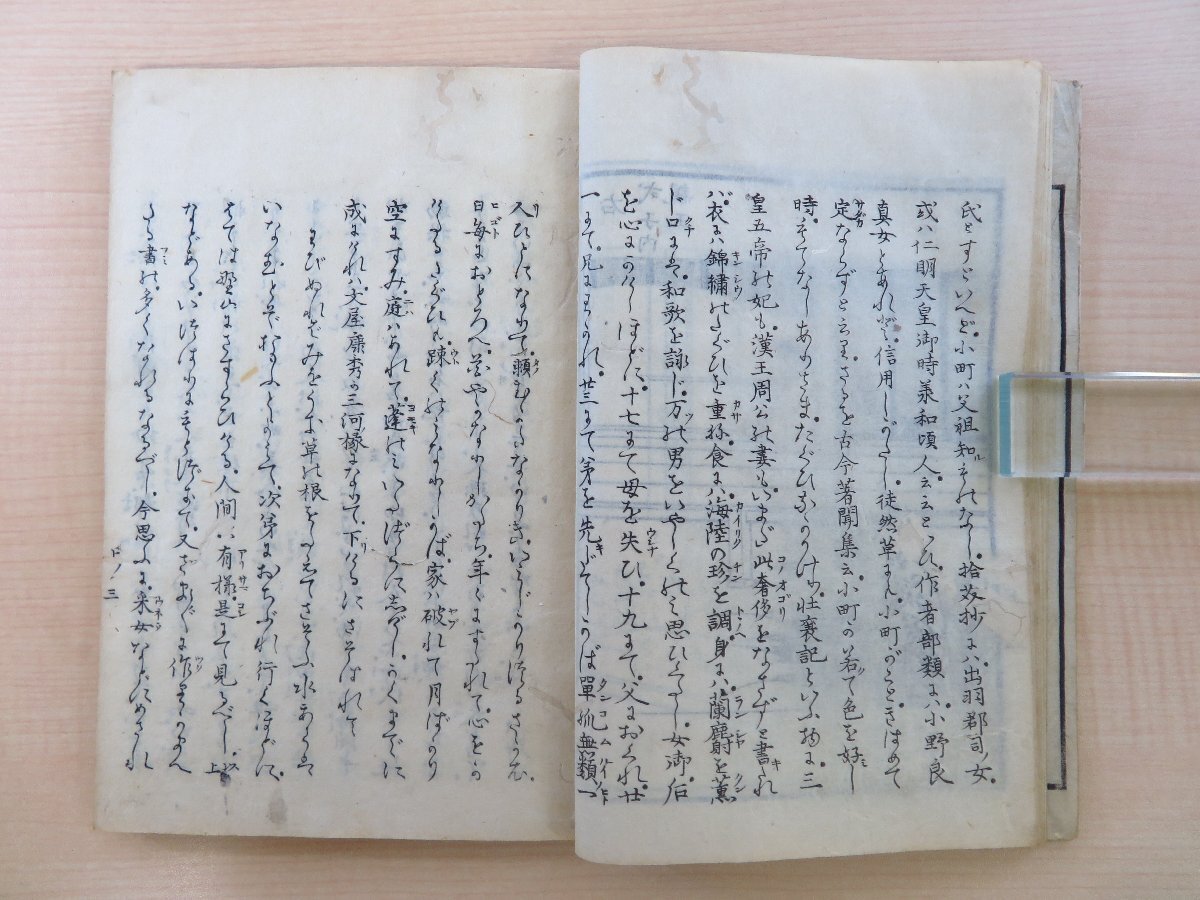 氏とすといへど。小町ハ父祖知るものなし。拾芥抄にハ。出羽郡司ノ女。
或ハ仁明天皇御時承和頃人云云といひ。作者部類にハ。小野良
真女とあれど。信用しがたし。徒然草にも。小町がこと。きはめて
定ならずといへり。さるを古今著聞集云小町の若て色を好し
時。もてなしありさま。たぐひなかりけり。壮衰記といふ物に。三
皇五帝の妃も。漢王周公の妻も。いまだ此奢侈をなさずと書たれ
バ。衣にハ錦繍のたぐひを重ね。食にハ海陸の珍を調。身にハ蘭麝を薫
ド口にハ。和歌を詠ジ。万の男をいやしくのミ思ひくたし。女御。后
を心にかけしほどに。十七にて母を失ひ。十九にて。父におくれ。廿
一にて。兄にわかれ。廿三にて。弟を先だてしかば。單孤無類の
人ひとりになりて。頼むかたなかりき。いみじかりつるさかえ。
日毎におとろへ。花やかなりしかたち。年々にすたれて。心をか
けたるたぐひも。疎くのミなりしかば。家ハ破れて月ばかり
空にすみ。庭ハあれて。蓬のミいたづらにしげし。かくまでに
成にけれバ。文屋康秀が三河掾になりて。下りけるにさそはれて
わびぬれバみをうき草の根をたえてさそふ水あらバ
いなむとぞおもふとよみて。次第におちぶれ行くほどに。
はては野山にさすらひける。人間ノ有様是にて見るべし。以上
などあるハ
たる書の。多くなれるなるべし。今思ふに。采女などにめされ
口ノ三